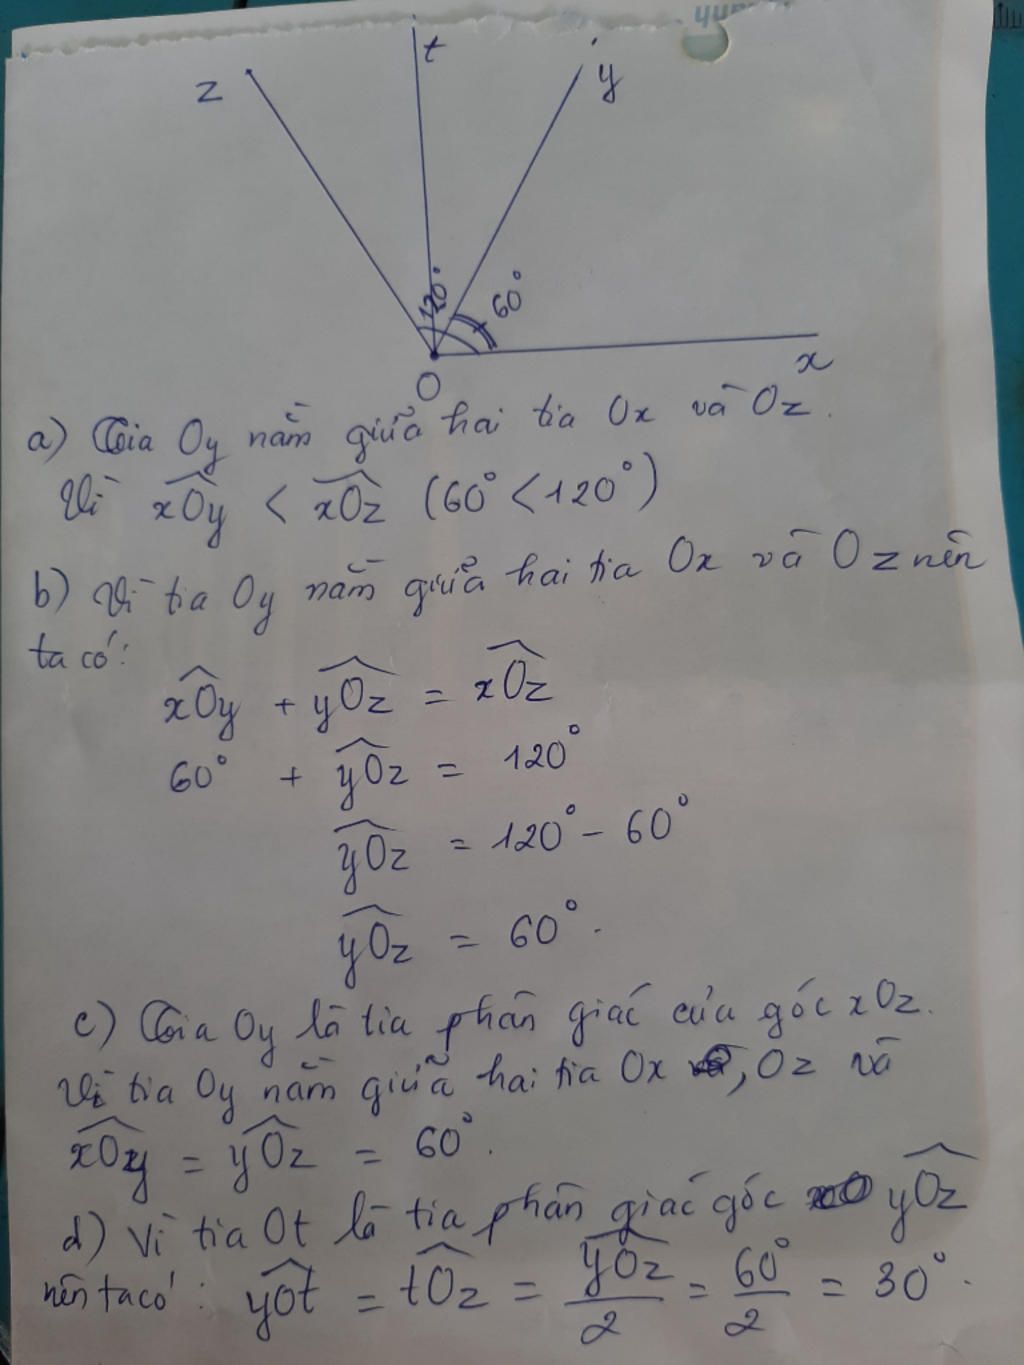 z t y
120° 60°
O x
a) Tia Oy nằm giữa hai tia Ox và Oz.
Vì xOy < xOz (60° < 120°)
b) Vì tia Oy nằm giữa hai tia Ox và Oz nên
ta có:
xOy + yOz = xOz
60° + yOz = 120°
yOz = 120° - 60°
yOz = 60°.
c) Tia Oy là tia phân giác của góc xOz.
Vì tia Oy nằm giữa hai tia Ox, Oz và
xOy = yOz = 60°.
d) Vì tia Ot là tia phân giác góc yOz
nên ta có: yOt = tOz = yOz/2 = 60°/2 = 30°.